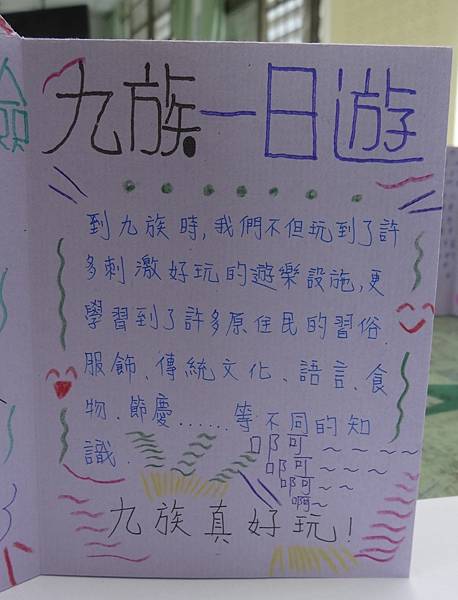 九族一日遊
到九族時,我們不但玩到了許
多刺激好玩的遊樂設施,更
學習到了許多原住民的習俗.
服飾、傳統文化、語言、食
物、節慶……等不同的知
識.
啊可～～～～
啊可～～～
啊可～～
啊～
九族真好玩!